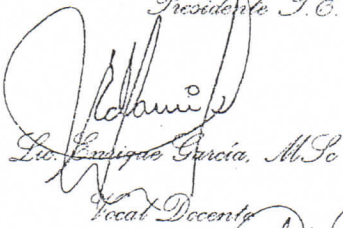 Presidente T.E.
Lic. Enrique García, MSc
Vocal Docente